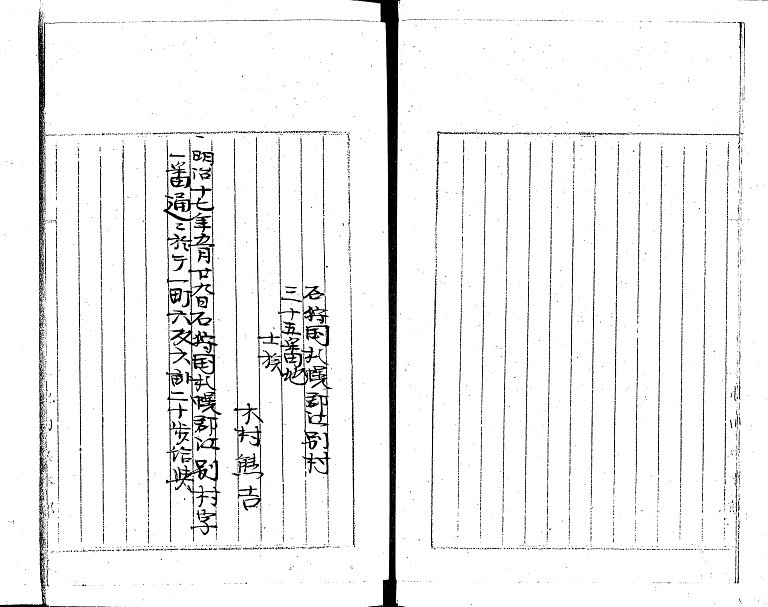 石狩国札幌郡江別村
三十五番地
士族
木村熊吉
一明治十七年五月廿九日石狩国札幌郡江別村字
一番通ニ於テ一町六反六畝二十歩給与